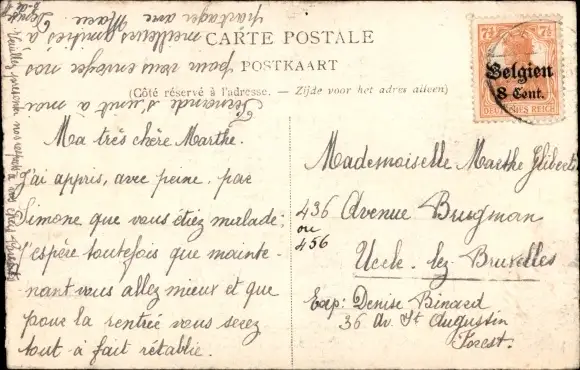 CARTE POSTALE
POSTKAART
(Côté réservé à l'adresse. — Zijde voor het adres alleen)
7½ 7½
Belgien
8 Cent.
DEUTSCHES REICH
Ma très chère Marthe.
J'ai appris, avec peine, par
Simone que vous étiez malade;
j'espère toutefois que mainte-
nant vous allez mieux et que
pour la rentrée vous serez
tout à fait rétablie.
Fernande s'unit à moi
pour vous envoyer nos
meilleurs amitiés à
partager avec Marie
Mademoiselle Marthe
436 Avenue Brugman
ou
456
Uccle-lez-Bruxelles
Exp: Denise Binard
36 Av. St Augustin
Forest.